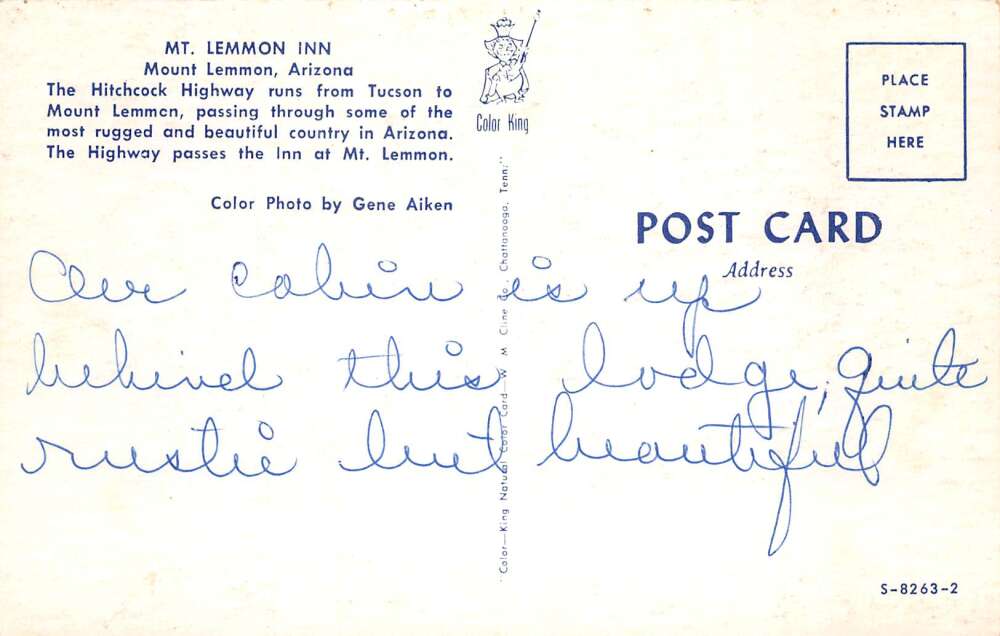 MT. LEMMON INN
Mount Lemmon, Arizona
The Hitchcock Highway runs from Tucson to
Mount Lemmon, passing through some of the
most rugged and beautiful country in Arizona.
The Highway passes the Inn at Mt. Lemmon.
Color Photo by Gene Aiken
Color King
"Color—King Natural Color Card—W. M. Cline Co. Chattanooga, Tenn."
PLACE
STAMP
HERE
POST CARD
Address
Our cabin is up
behind this lodge, quite
rustic but beautiful
S-8263-2